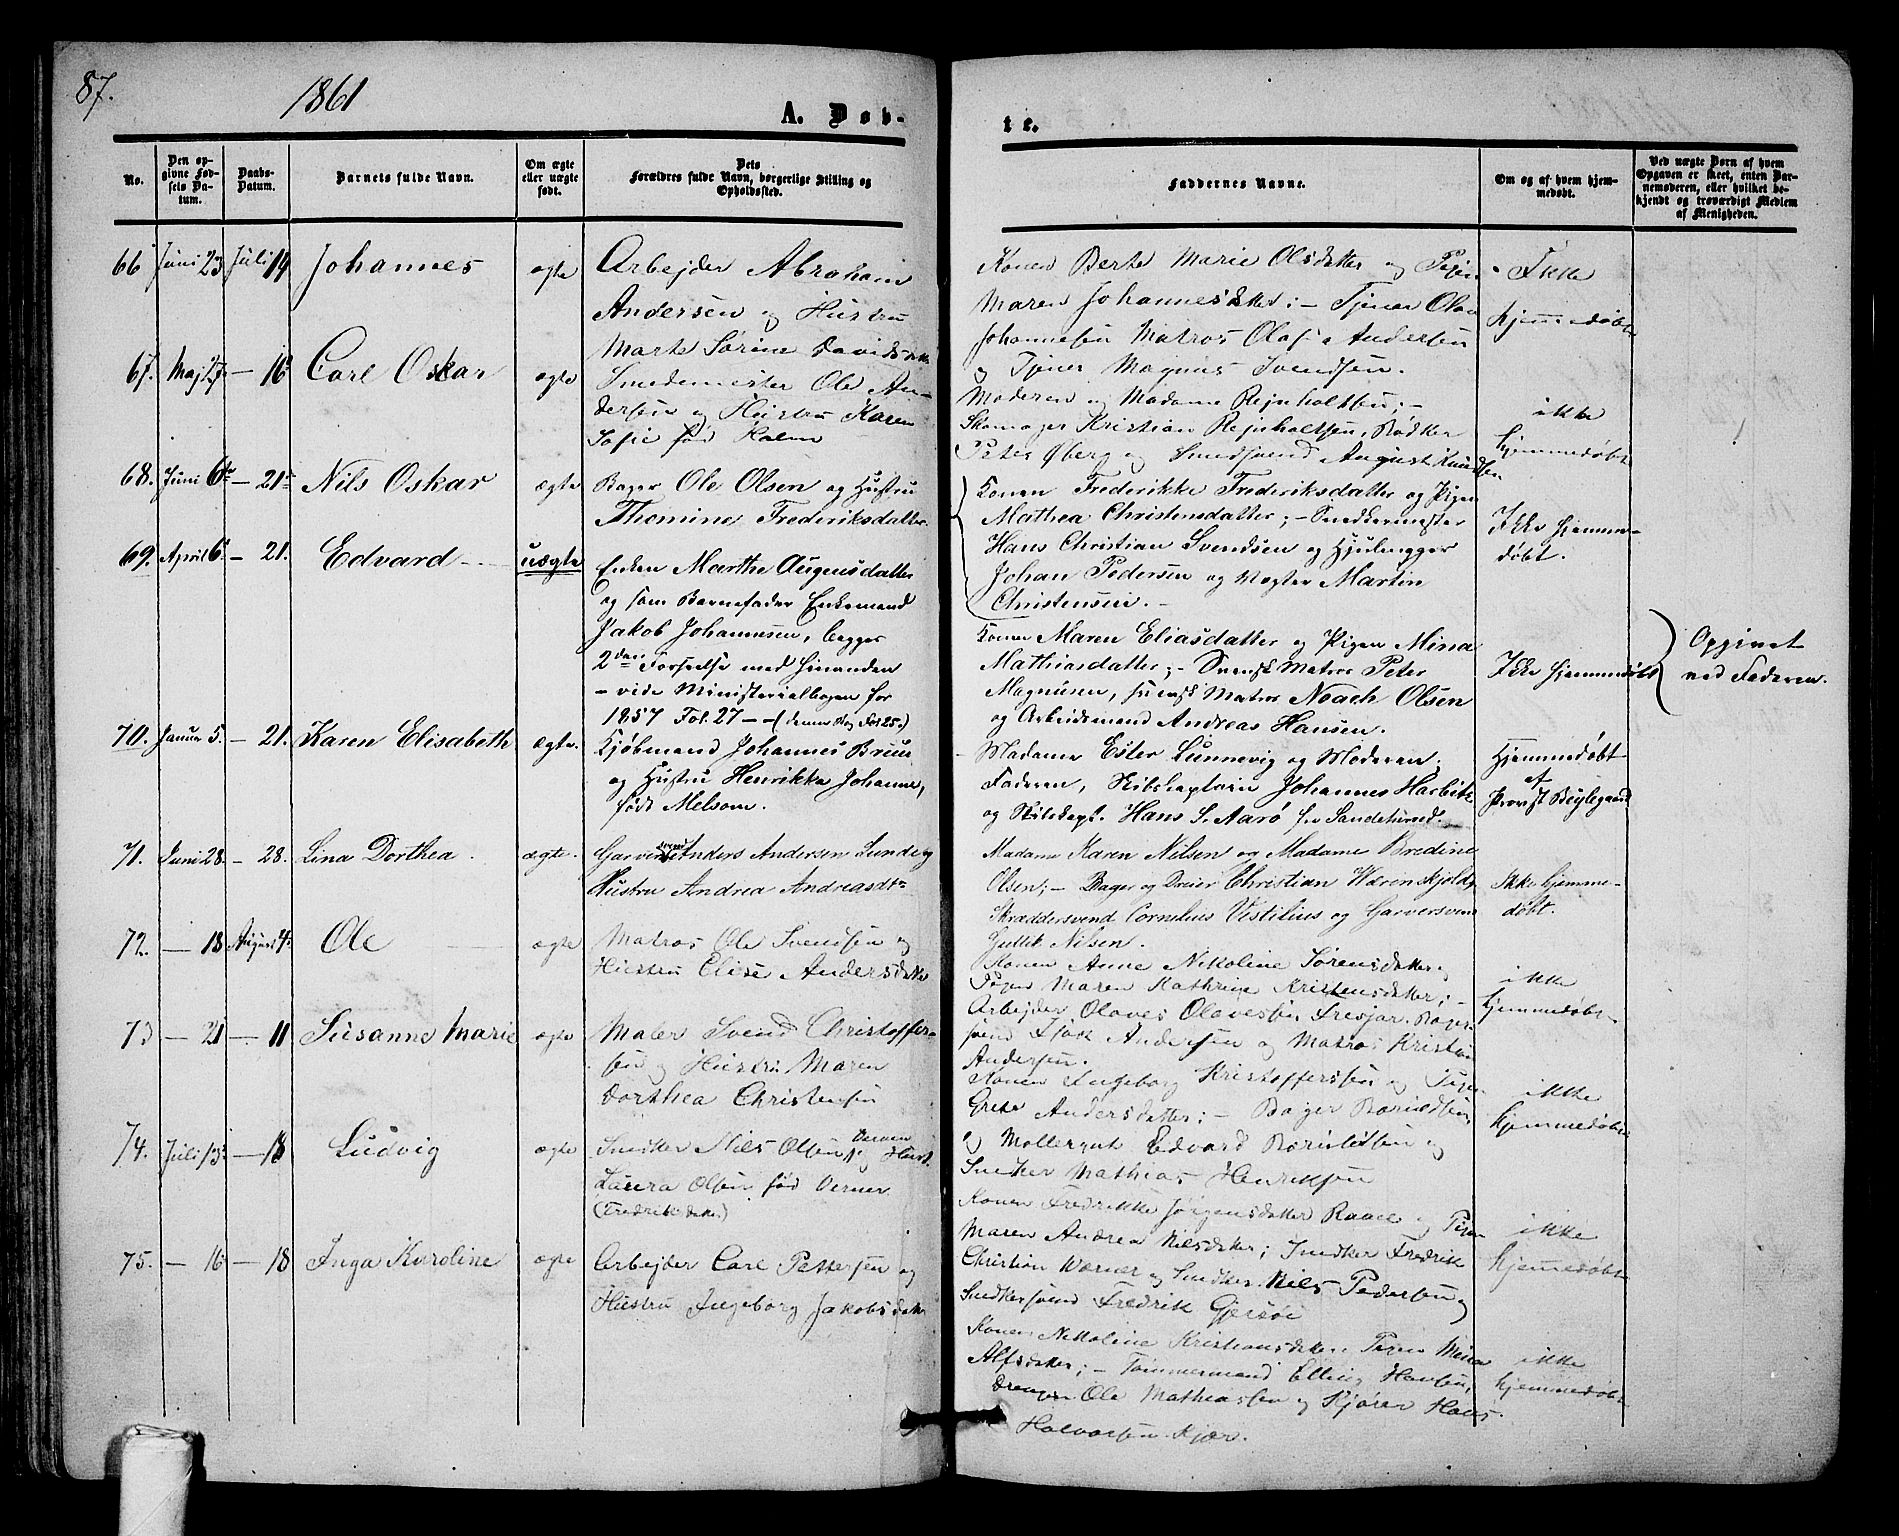 87.
1861
A. Døb-
te.
No.
Den opgivne Fødsels Datum.
Daabs-Datum.
Barnets fulde Navn.
Om ægte eller uægte født.
Dets Forældres fulde Navn, borgerlige Stilling og Opholdssted.
Faddernes Navne.
Om og af hvem hjemmedøbt.
Ved uægte Børn af hvem Opgaven er skeet, enten Barnemoderen, eller hvilket bekjendt og troværdigt Medlem af Menigheden.
66 Juni 23 Juli 14 Johannes ægte Arbejder Abraham
Andersen og Hustru
Marte Sørine Davidsdtr
Konen Berte Marie Olsdatter og Pigen
Maren Johannesdatter; - Tjener Olav
Johannesen Matros Olaf Andersen
og Tjener Magnus Svendsen.
Ikke
hjemmedøbt
67. Maj 27 - 16 Carl Oskar ægte Smedemester Ole An-
dersen og Hustru Karen
Sofie født Holm
Moderen og Madame Rejnholtsen; -
Skomager Kristian Rejnholtsen, Bødker
Peter Øberg og Smedsvend August Knudsen
ikke
hjemmedøbt
68. Juni 6te - 21de Nils Oskar ægte Bager Ole Olsen og Hustru
Thomine Frederiksdatter.
Konen Frederikke Frederiksdatter og Pigen
Mathea Christensdatter; - Snedkermester
Hans Christian Svendsen og Hjulmager
Johan Pedersen og Vægter Martin
Christensen. -
Ikke hjemme-
døbt.
69. April 6 - 21. Edvard uægte Enken Marthe Augensdatter
og som Barnefader Enkemand
Jakob Johannesen, begges
2den Forseelse med hinanden
- vide Ministerialbogen for
1857 Fol. 27 - - (denne Bog Fol 25.)
Konen Maren Eliasdatter og Pigen Mina
Mathiasdatter; - Svensk Matros Peter
Magnusen, svensk Matros Noach Olsen
og Arbeidsmand Andreas Hansen.
Ikke hjemmedøbt
Opgivet
ved Faderen.
70. Januar 5. - 21. Karen Elisabeth ægte. Kjøbmand Johannes Bruun
og Hustru Henrikke Johanne,
født Melsom.
Madame Ester Lunnevig og Moderen.
Faderen, Skibskaptein Johannes Harbitz
og Skibskapt. Hans S. Aarø fra Sandesund.
Hjemmedøbt
af
Provst Beylegaard
71. Juni 28. - 28. Lina Dorthea. ægte. Garversvend Anders Andersen Lunde og
Hustru Andrea Andreasdtr
Madame Karen Nilsen og Madame Bredine
Olsen; - Bager og Dreier Christian Wærenskjold,
Skræddersvend Cornelius Vistilius og Garversvend
Gullik Nilsen.
Ikke hjemme-
døbt.
72. - 18 August 4 Ole ægte Matros Ole Svendsen og
Hustru Elise Andersdatter
Konen Anne Nikoline Sørensdatter og
Pigen Maren Kathrine Kristensdatter; -
Arbejder Olaves Olavesen Fresjar. Bager-
svend Isak Andersen og Matros Kristian
Andersen.
ikke
hjemmedøbt
73 - 21 - 11 Susanne Marie ægte Maler Svend Christoffer-
sen og Hustru Maren
Dorthea Christensen
Konen Ingeborg Kristoffersen og Pigen
Grete Andersdatter; - Bager Berntsen
og Møllergut Edvard Berntsen og
Snedker Mathias Henriksen
ikke
hjemmedøbt
74. Juli 13 - 18 Ludvig ægte Snedker Nils Olsen og Hust.
Laura Olsen født Verner
(Fredriksdatter)
Konen Fredrikke Jørgensdatter Raael og Pigen
Maren Andrea Nilsdatter; Snedker Fredrik
Christian Wærner og Snedker Nils Pedersen og
Snedkersvend Fredrik Gjersøe
ikke
hjemmedøbt
75. - 16 - 18 Inga Karoline ægte Arbejder Carl Pettersen og
Hustru Ingeborg Jakobsdatter
Konen Nikoline Kristiansdatter, Pigen Mina
Alfsdatter; - Tømmermand Elling Hansen,
Drengen Ole Mathiassen og Kjører Hans
Halvorsen Kjær.
ikke
hjemmedøbt